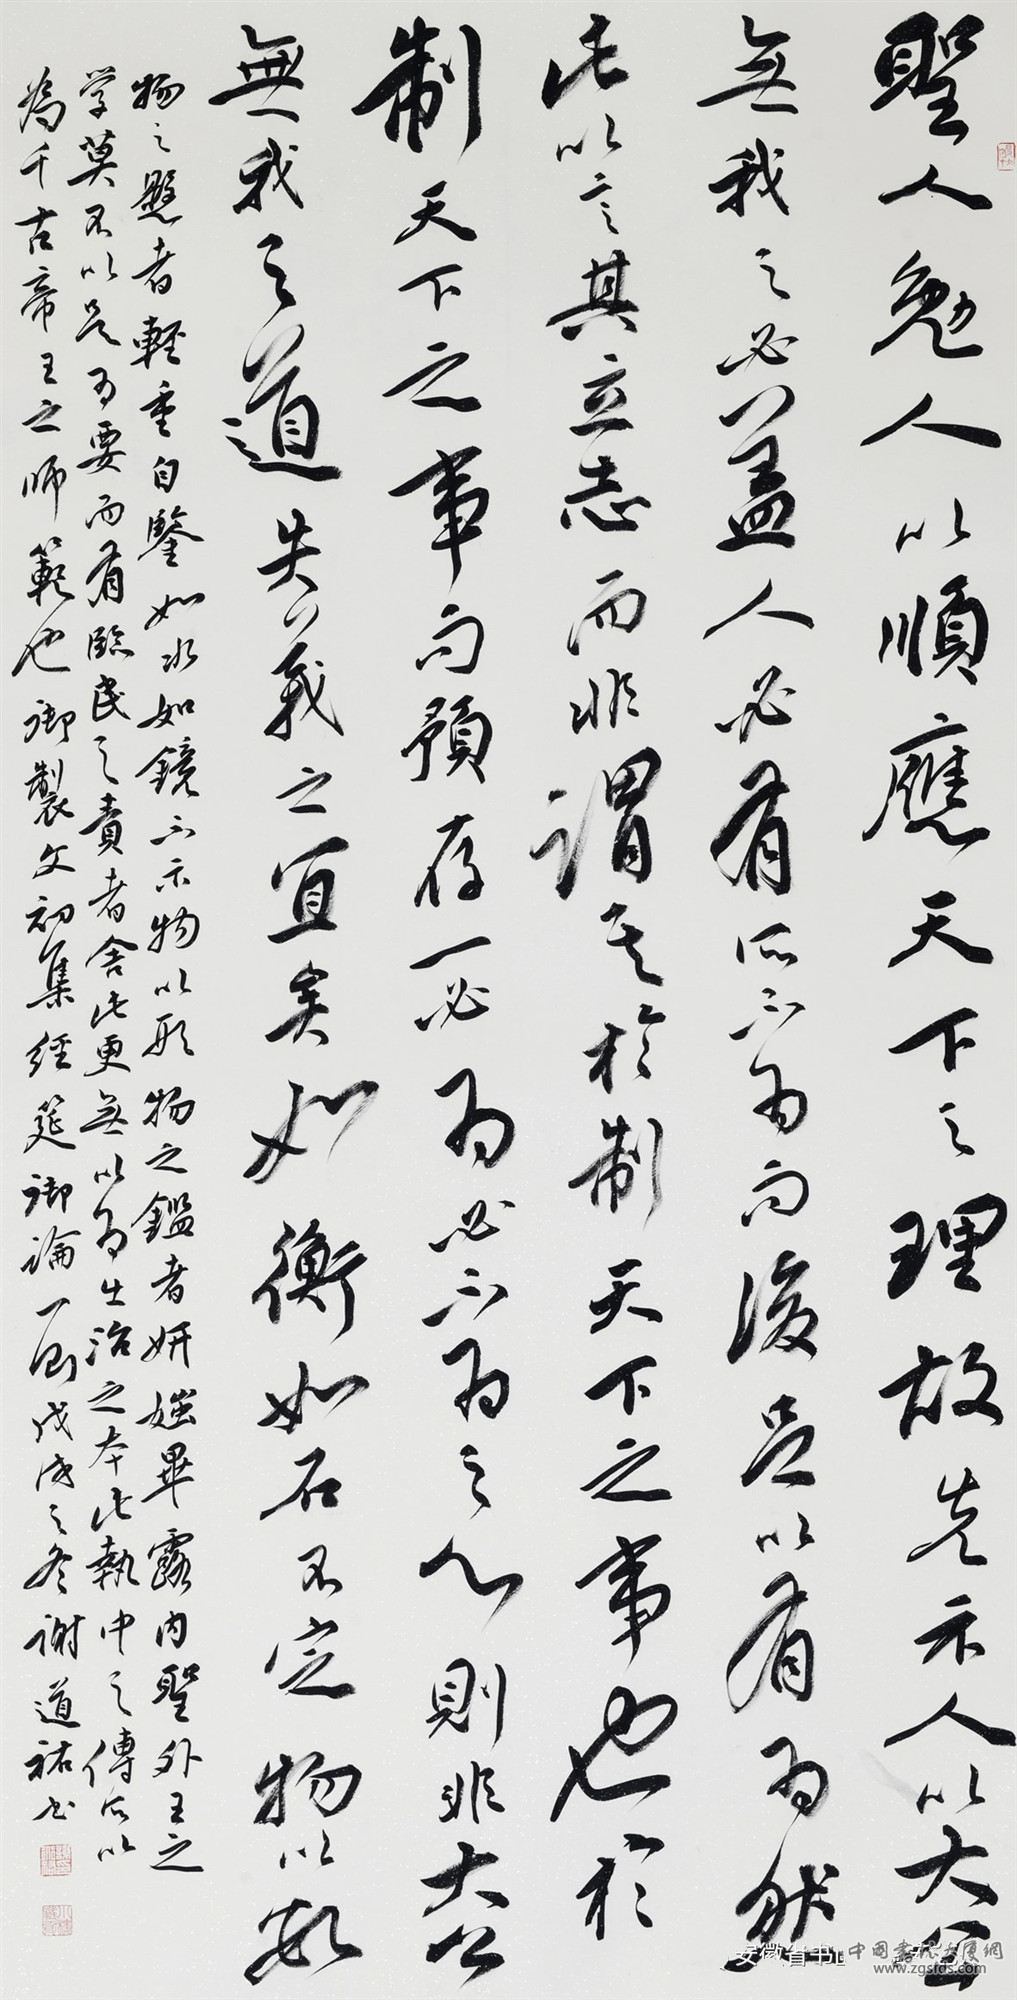 聖人勉人以順應天下之理故先示人以大公
無我之必蓋人必有所不為而後足以有為然
此以言其立志而非謂其於制天下之事也於
制天下之事而預存一必為必不為之心則非大公
無我之道失義之宜矣如衡如石不定物以數
物之懸者輕重自鑒如水如鏡不示物以形物之鑑者妍媸畢露内聖外王之
学莫不以是为要而有臨民之責者舍此更無以為出治之本此執中之傳所以
為千古帝王之師範也御製文初集經筵御論一則戊戌之冬謝道祐书
安徽省书
中國書法大廈網
www.zgsfds.com